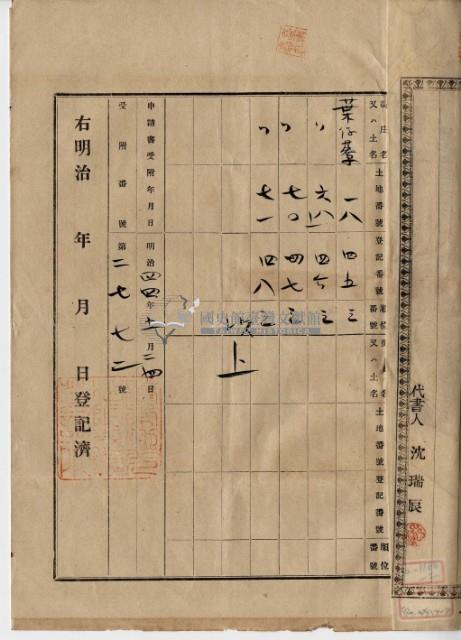 代書人 沈瑞辰
街庄名又ハ土名 土地番號 登記番號 順位番號
街庄名又ハ土名 土地番號 登記番號 順位番號
一八 四五 三
〃 六八 四六 三
〃 七〇 四七 三
〃 七一 四八 三
以上
申請書受附年月日 明治四四年十一月二四日
受附番號 第二七七二號
右明治 年 月 日登記濟
國史館臺灣文獻館
TAIWAN HISTORICA